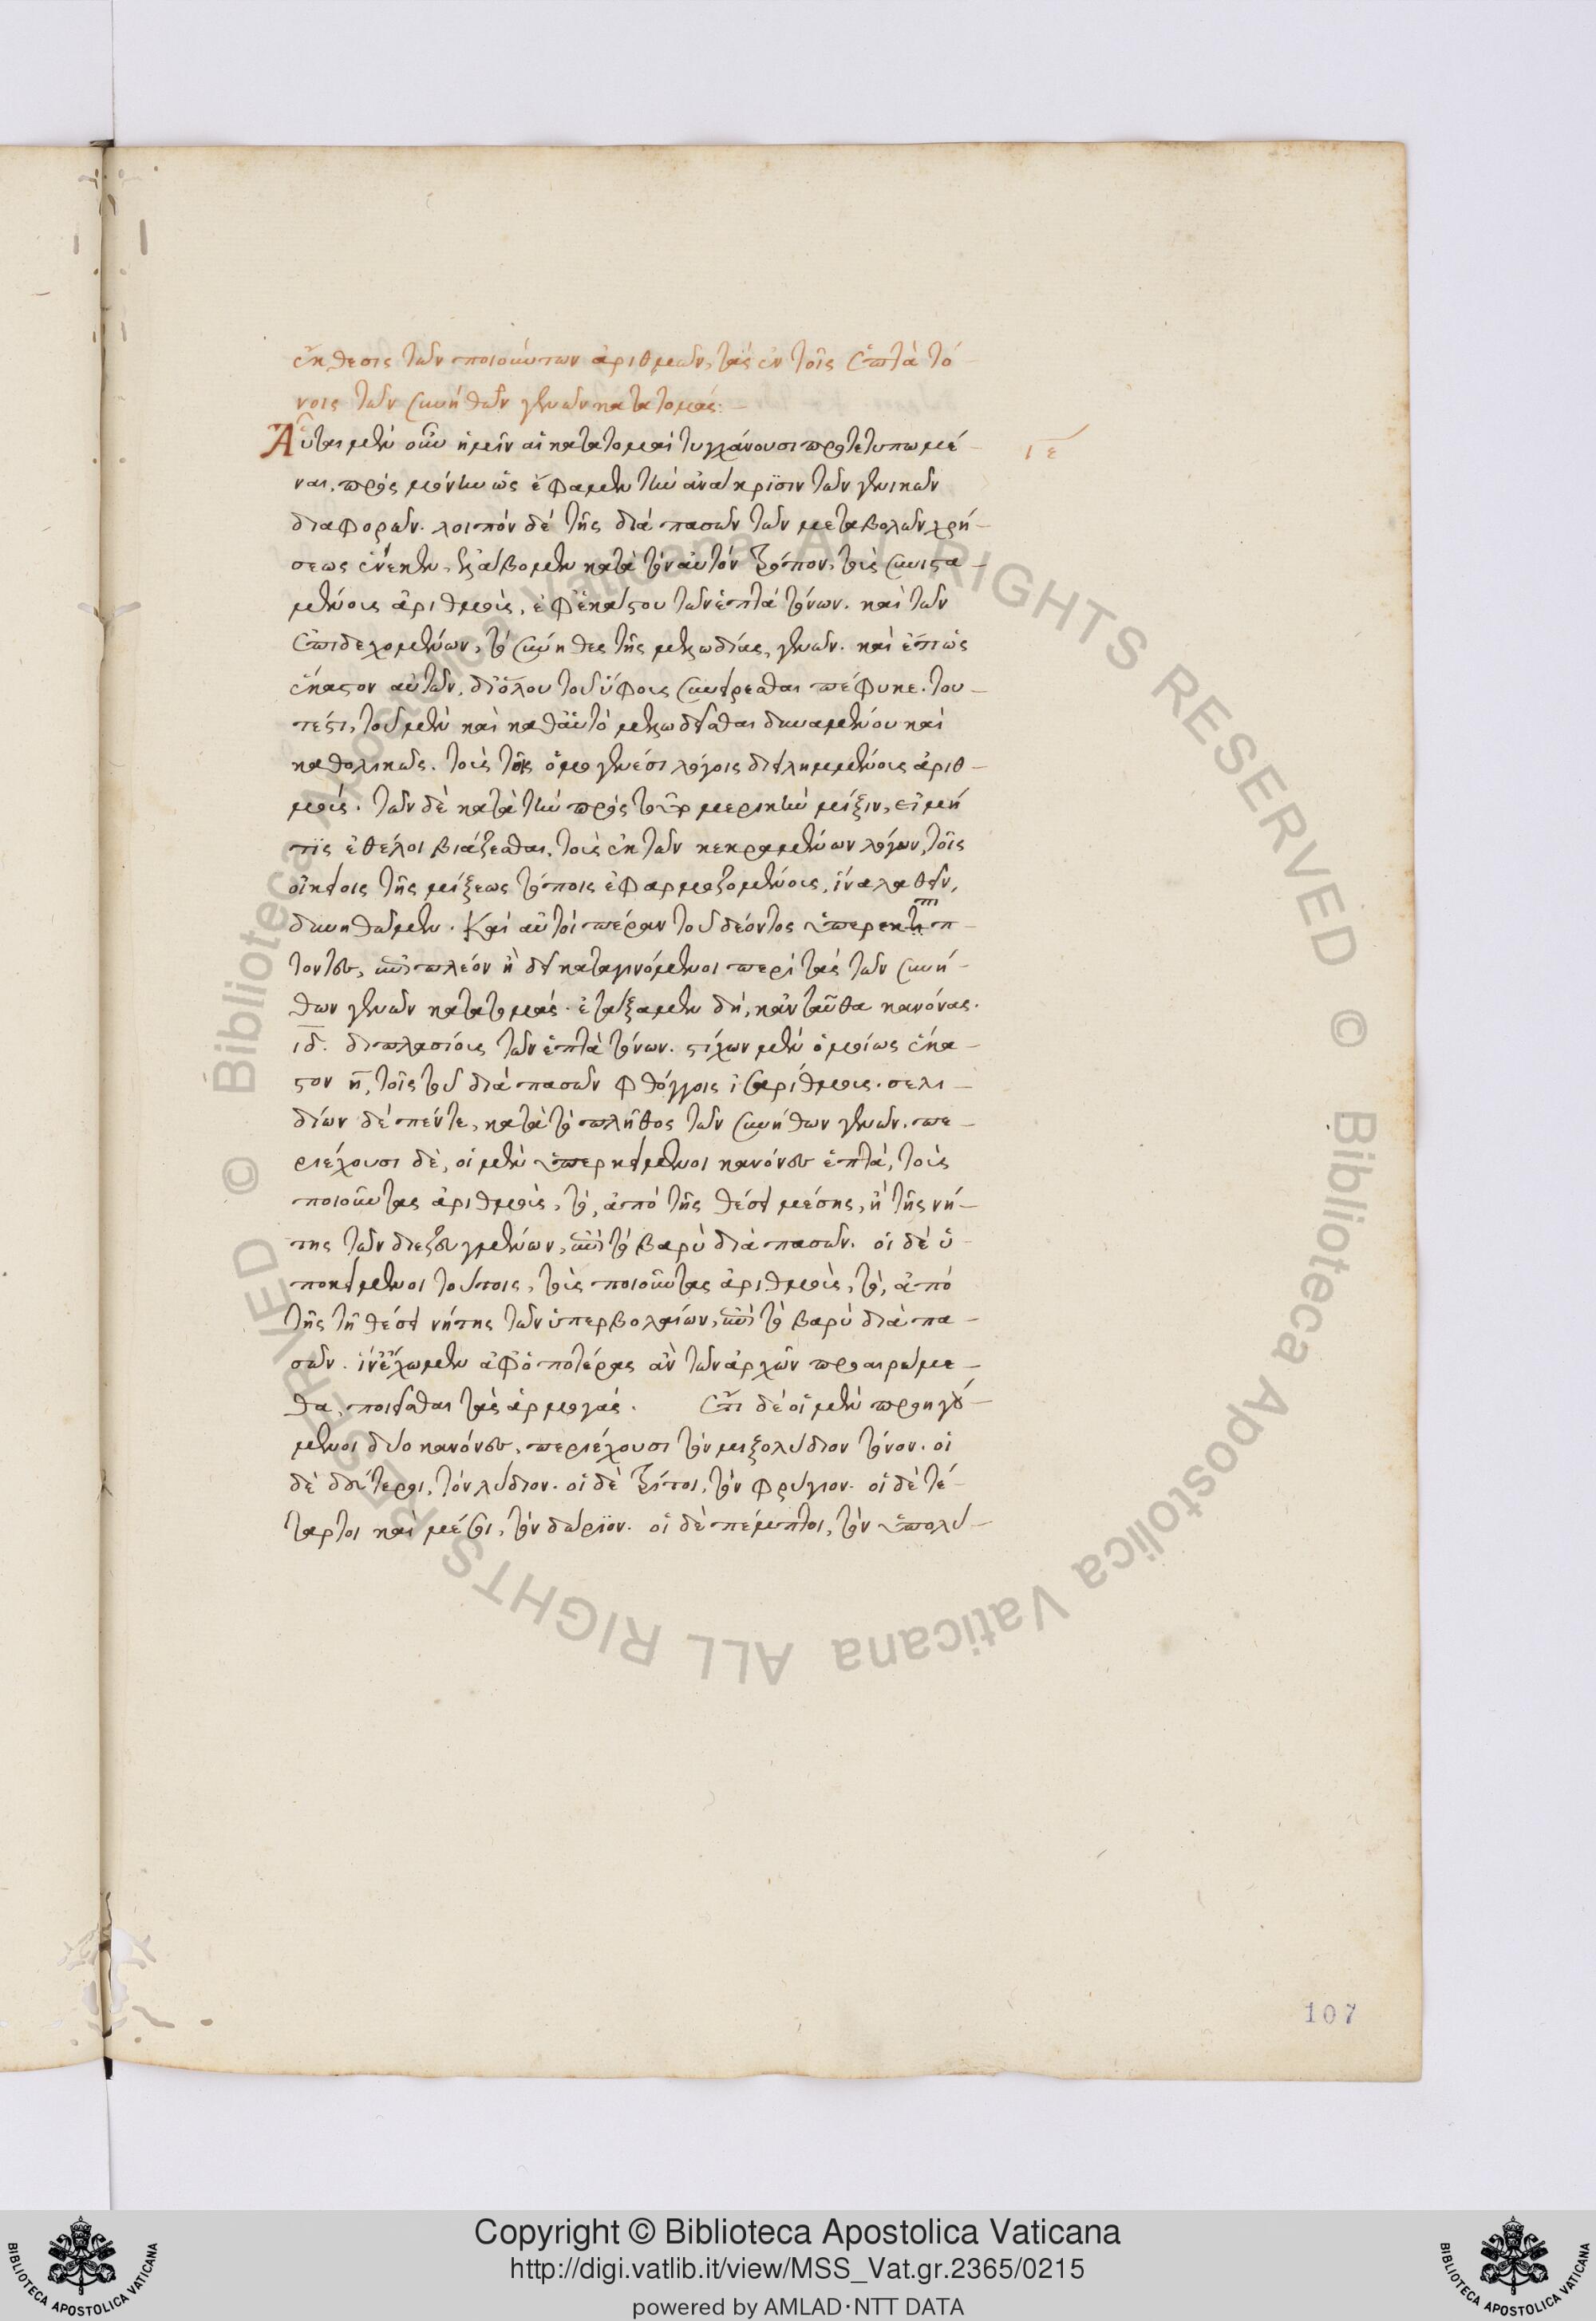 ἔκθεσις τῶν ποιούντων ἀριθμῶν, τὰς ἐν τοῖς ἑπτὰ τό-
νοις τῶν συνήθων γενῶν κατατομάς:-
Αὗται μὲν οὖν ἡμῖν αἱ κατατομαὶ τυγχάνουσι προτετυπωμέ-
ναι, πρὸς μόνην ὡς ἔφαμεν τὴν ἀνάκρϊσιν τῶν γενικῶν
διαφορῶν. λοιπὸν δὲ τῆς διὰ πασῶν τῶν μεταβολῶν χρή-
σεως ἕνεκεν, ἐλάβομεν κατὰ τὸν αὐτὸν τρόπον, τοὺς συνιστα-
μένους ἀριθμοὺς, ἐφ' ἑκάστου τῶν ἑπτὰ τόνων. καὶ τῶν
ἐπιδεχομένων, τὸ σύνηθες τῆς μελῳδίας, γενῶν. καὶ ἔτι ὡς
ἕκαστον αὐτῶν, δι' ὅλου τοῦ ὕφους συνείρεσθαι πέφυκε. του-
τέστι, τοῦ μὲν καὶ καθ' αὑτὸ μελῳδεῖσθαι δυναμένου καὶ
καθολικῶς. τοὺς τοῖς ὁμογενέσι λόγοις διειλημμένους ἀριθ-
μούς. τῶν δὲ κατὰ τὴν πρὸς τοῦτο μερικὴν μίξιν, εἰ μή
τις ἐθέλοι βιάζεσθαι, τοὺς ἐκ τῶν κεκραμένων λόγων, τοῖς
οἰκείοις τῆς μίξεως τόποις ἐφαρμοζομένους, ἵνα λαθεῖν,
δυνηθῶμεν. Καὶ αὐτοὶ πέραν τοῦ δέοντος ὑπερεκπιπ-
τοντες, καὶ πλέον ἢ δεῖ καταγινόμενοι περὶ τὰς τῶν συνή-
θων γενῶν κατατομάς. ἐτάξαμεν δὴ, κἀνταῦθα κανόνας.
ιδ. διπλασίους τῶν ἑπτὰ τόνων. στίχων μὲν ὁμοίως ἕκα-
στον η, τοῖς τοῦ διὰ πασῶν φθόγγοις ἰσαρίθμους. σελι-
δίων δὲ πέντε, κατὰ τὸ πλῆθος τῶν συνήθων γενῶν. πε-
ριέχουσι δὲ, οἱ μὲν ὑπερκείμενοι κανόνες ἑπτὰ, τοὺς
ποιοῦντας ἀριθμοὺς, τὸ, ἀπὸ τῆς θέσει μέσης, ἢ τῆς νή-
της τῶν διεζευγμένων, ἐπὶ τὸ βαρὺ διὰ πασῶν. οἱ δὲ ὑ-
ποκείμενοι τούτοις, τοὺς ποιοῦντας ἀριθμοὺς, τὸ, ἀπὸ
τῆς τῇ θέσει νήτης τῶν ὑπερβολαίων, ἐπὶ τὸ βαρὺ διὰ πα-
σῶν. ἵν' ἔχωμεν ἀφ' ὁποτέρας ἂν τῶν ἀρχῶν προαιρώμε-
θα, ποιεῖσθαι τὰς ἁρμογάς. Ἔτι δὲ οἱ μὲν προηγού-
μενοι δύο κανόνες, περιέχουσι τὸν μιξολύδιον τόνον. οἱ
δὲ δεύτεροι, τὸν λύδιον. οἱ δὲ τρίτοι, τὸν φρύγιον. οἱ δὲ τέ-
ταρτοι καὶ μέσοι, τὸν δώρϊον. οἱ δὲ πέμπτοι, τὸν ὑπολύ-
ιε
107
© Biblioteca Apostolica Vaticana ALL RIGHTS RESERVED © Biblioteca Apostolica Vaticana ALL RIGHTS RESERVED
BIBLIOTECA APOSTOLICA VATICANA
Copyright © Biblioteca Apostolica Vaticana
http://digi.vatlib.it/view/MSS_Vat.gr.2365/0215
powered by AMLAD·NTT DATA
BIBLIOTECA APOSTOLICA VATICANA